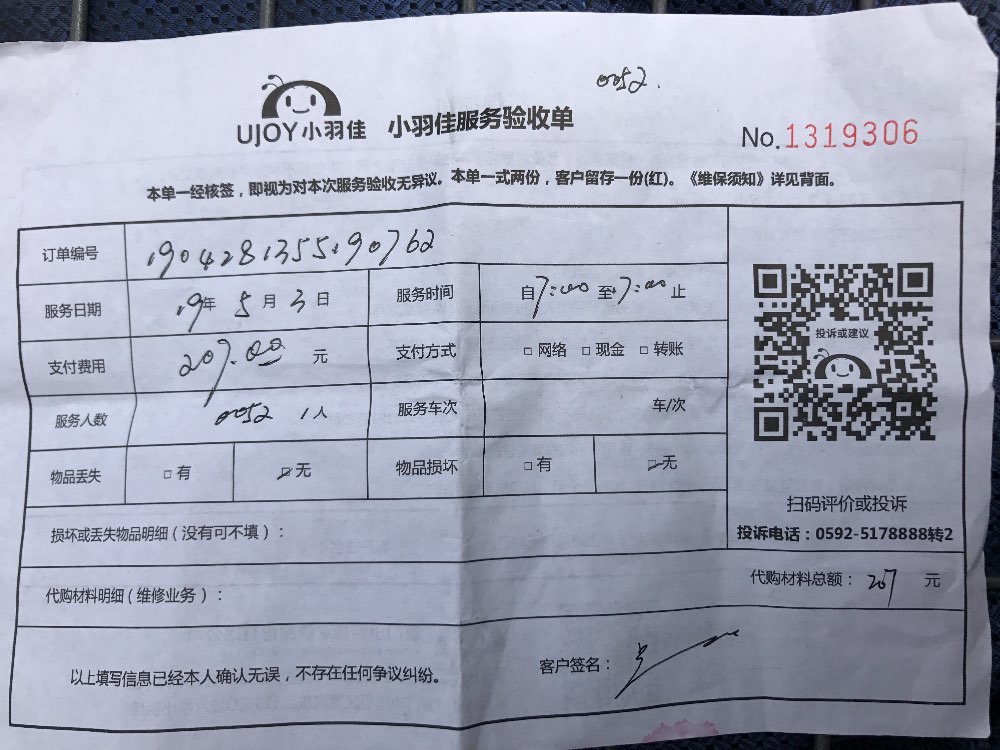 0052.
UJOY小羽佳 小羽佳服务验收单
No.1319306
本单一经核签，即视为对本次服务验收无异议。本单一式两份，客户留存一份(红)。《维保须知》详见背面。
订单编号 1904281355190762
服务日期 19年 5月 3日 服务时间 自7:00至17:00止
支付费用 207.00 元 支付方式 □ 网络 □ 现金 □ 转账
服务人数 0052 1人 服务车次 车/次
物品丢失 □ 有 □ 无 物品损坏 □ 有 □ 无
投诉或建议
扫码评价或投诉
投诉电话：0592-5178888转2
损坏或丢失物品明细（没有可不填）：
代购材料明细（维修业务）： 代购材料总额：207 元
以上填写信息已经本人确认无误，不存在任何争议纠纷。 客户签名：